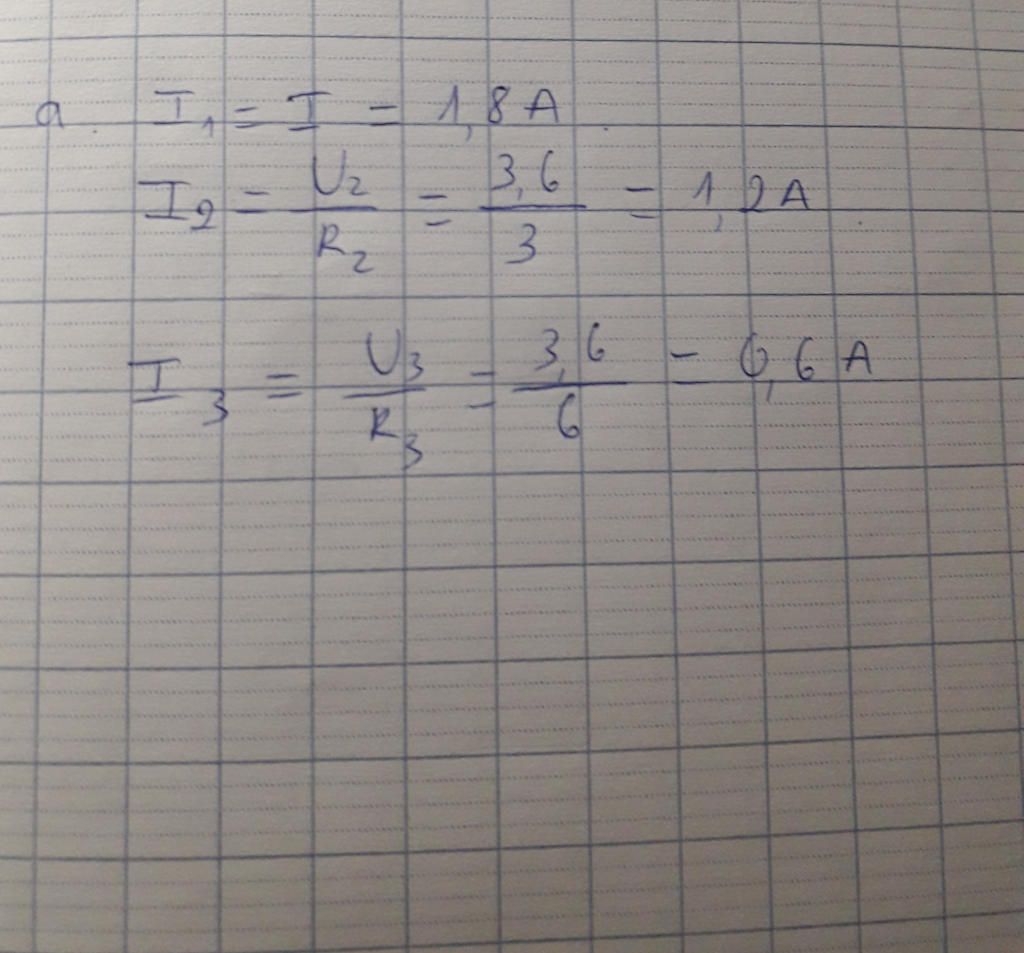 a. I₁ = I = 1,8 A.
I₂ = U₂/R₂ = 3,6/3 = 1,2 A.
I₃ = U₃/R₃ = 3,6/6 = 0,6 A